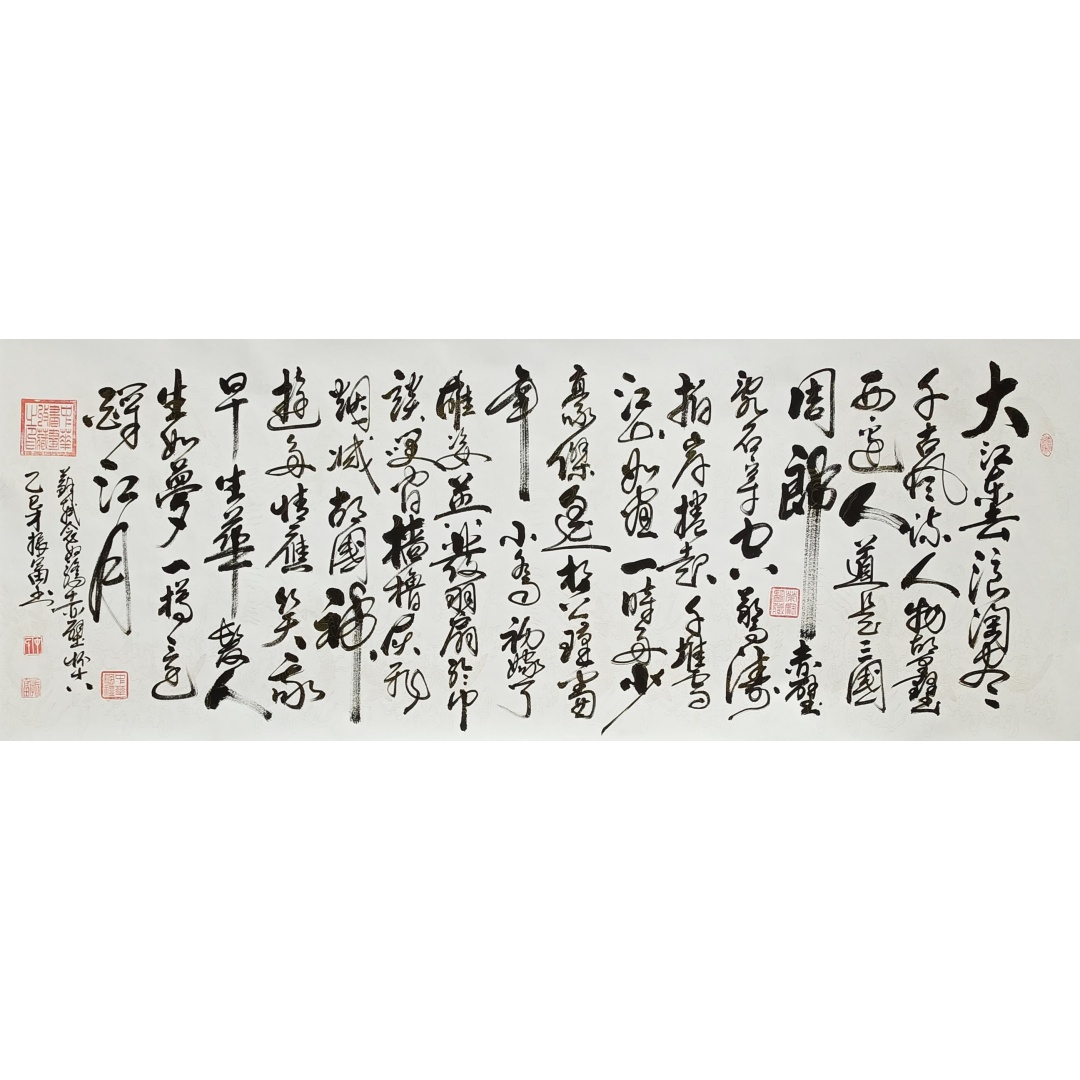 大江東去浪淘盡
千古風流人物故壘
西邊人道是三國
周郎赤壁
亂石穿空驚濤
拍岸捲起千堆雪
江山如畫一時多少
豪傑遙想公瑾當
年小喬初嫁了
雄姿英發羽扇綸巾
談笑間檣櫓灰飛
煙滅故國神
遊多情應笑我
早生華髮人
生如夢一樽還
酹江月
蘇軾念奴嬌赤壁懷古
乙巳年振書